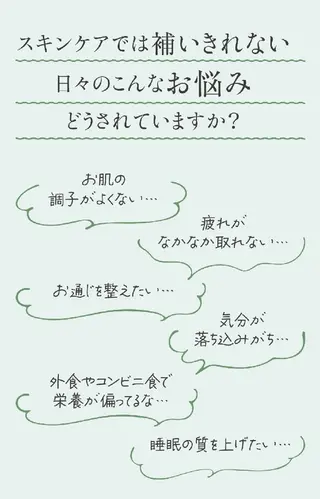 スキンケアでは補いきれない
日々のこんなお悩み
どうされていますか？
お肌の
調子がよくない…
疲れが
なかなか取れない…
お通じを整えたい…
気分が
落ち込みがち…
外食やコンビニ食で
栄養が偏ってるな…
睡眠の質を上げたい…